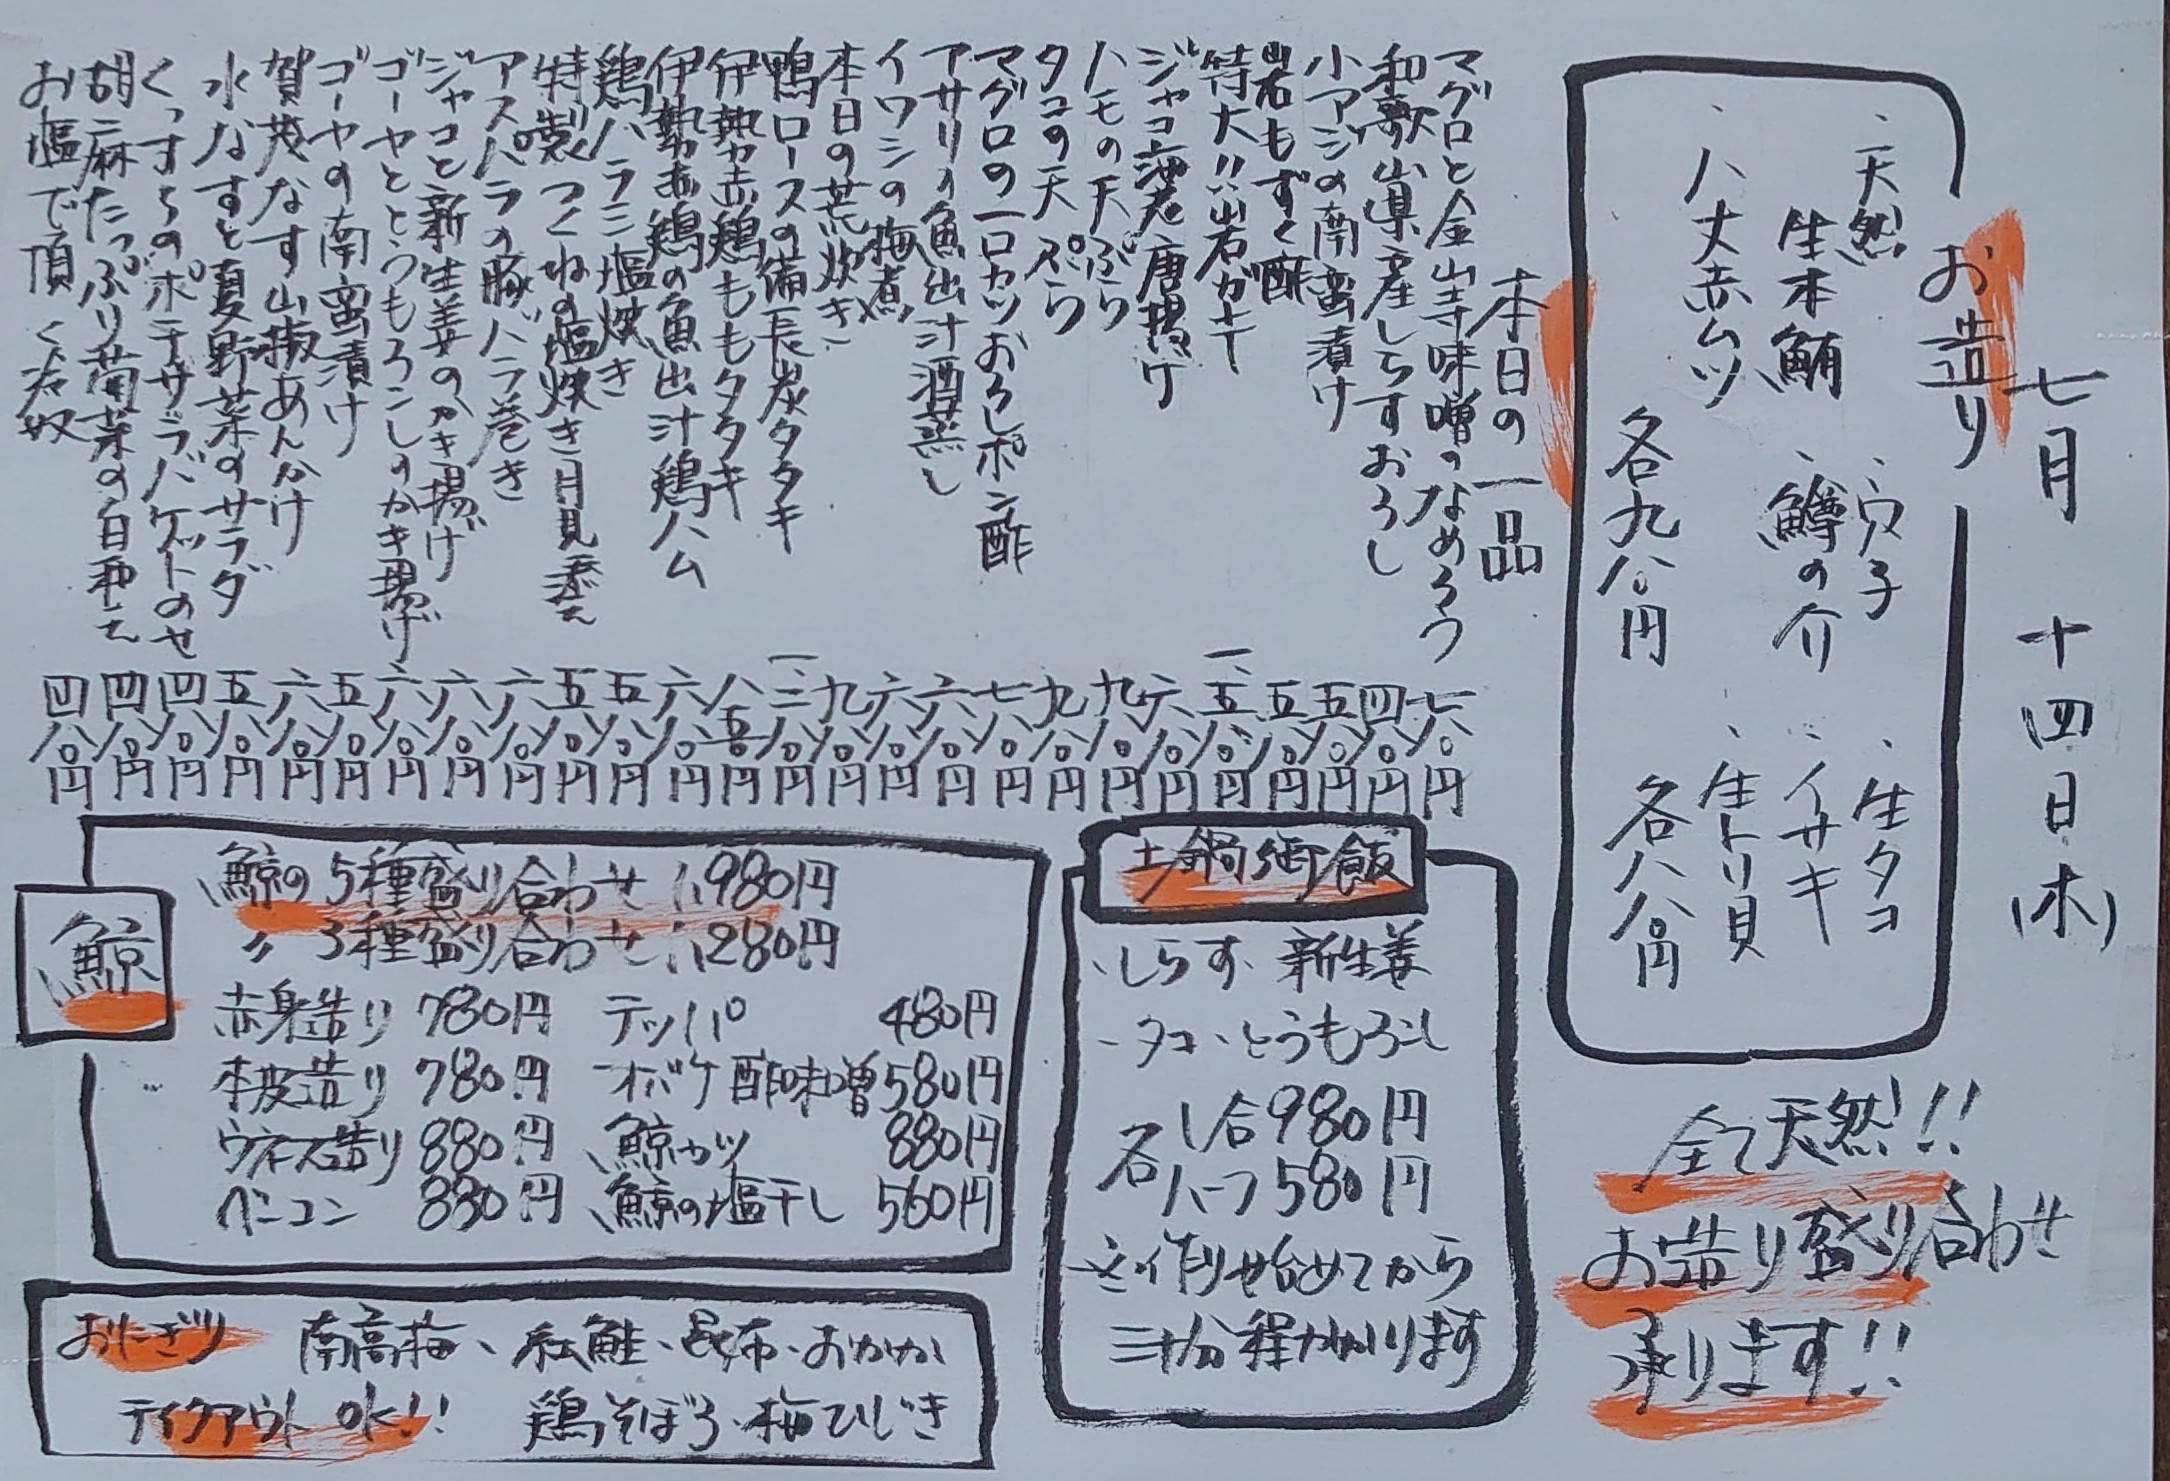 七月 十四日(木)
お造り
、天然 、穴子 、生タコ
生本鮪 、鱒の介 、イサキ
、八丈赤ムツ 、生トリ貝
各九八〇円 各八八〇円
全て天然!!
お造り盛り合わせ
承ります!!
本日の一品
マグロと金山寺味噌のなめろう 七八〇円
和歌山県産しらすおろし 四八〇円
小アジの南蛮漬け 五八〇円
岩もずく酢 五八〇円
特大!!岩ガキ 一、五八〇円
ジャコ海老唐揚げ 六八〇円
ハモの天ぷら 九八〇円
タコの天ぷら 九八〇円
マグロの一口カツおろしポン酢 七八〇円
アサリの魚出汁酒蒸し 六八〇円
イワシの梅煮 六八〇円
本日の荒炊き 九八〇円
鴨ロースの備長炭タタキ 一、二八〇円
伊勢赤鶏ももタタキ 八五〇円
伊勢赤鶏の魚出汁鶏ハム 六八〇円
鶏ハラミ塩焼き 五八〇円
特製つくねの塩焼き月見添え 五八〇円
アスパラの豚バラ巻き 六八〇円
ジャコと新生姜のかき揚げ 六八〇円
ゴーヤととうもろこしのかき揚げ 六八〇円
ゴーヤの南蛮漬け 五八〇円
賀茂なす山椒あんかけ 六八〇円
水なすと夏野菜のサラダ 五八〇円
くっすらのポテサラバケットのせ 四八〇円
胡麻たっぷり菊菜の白和え 四八〇円
お塩で頂く冷奴 四八〇円
土鍋御飯
・しらす、新生姜
・タコ、とうもろこし
各 1合980円
ハーフ580円
※作り始めてから
三十分程かかります
鯨
鯨の5種盛り合わせ 1,980円
〃 3種盛り合わせ 1,280円
赤身造り 780円 テッパ 480円
本皮造り 780円 オバケ酢味噌 580円
ウネス造り 880円 鯨カツ 880円
ベーコン 880円 鯨の塩干し 560円
おにぎり 南高梅、紅鮭、昆布、おかか
テイクアウトOK!! 鶏そぼろ、梅ひじき